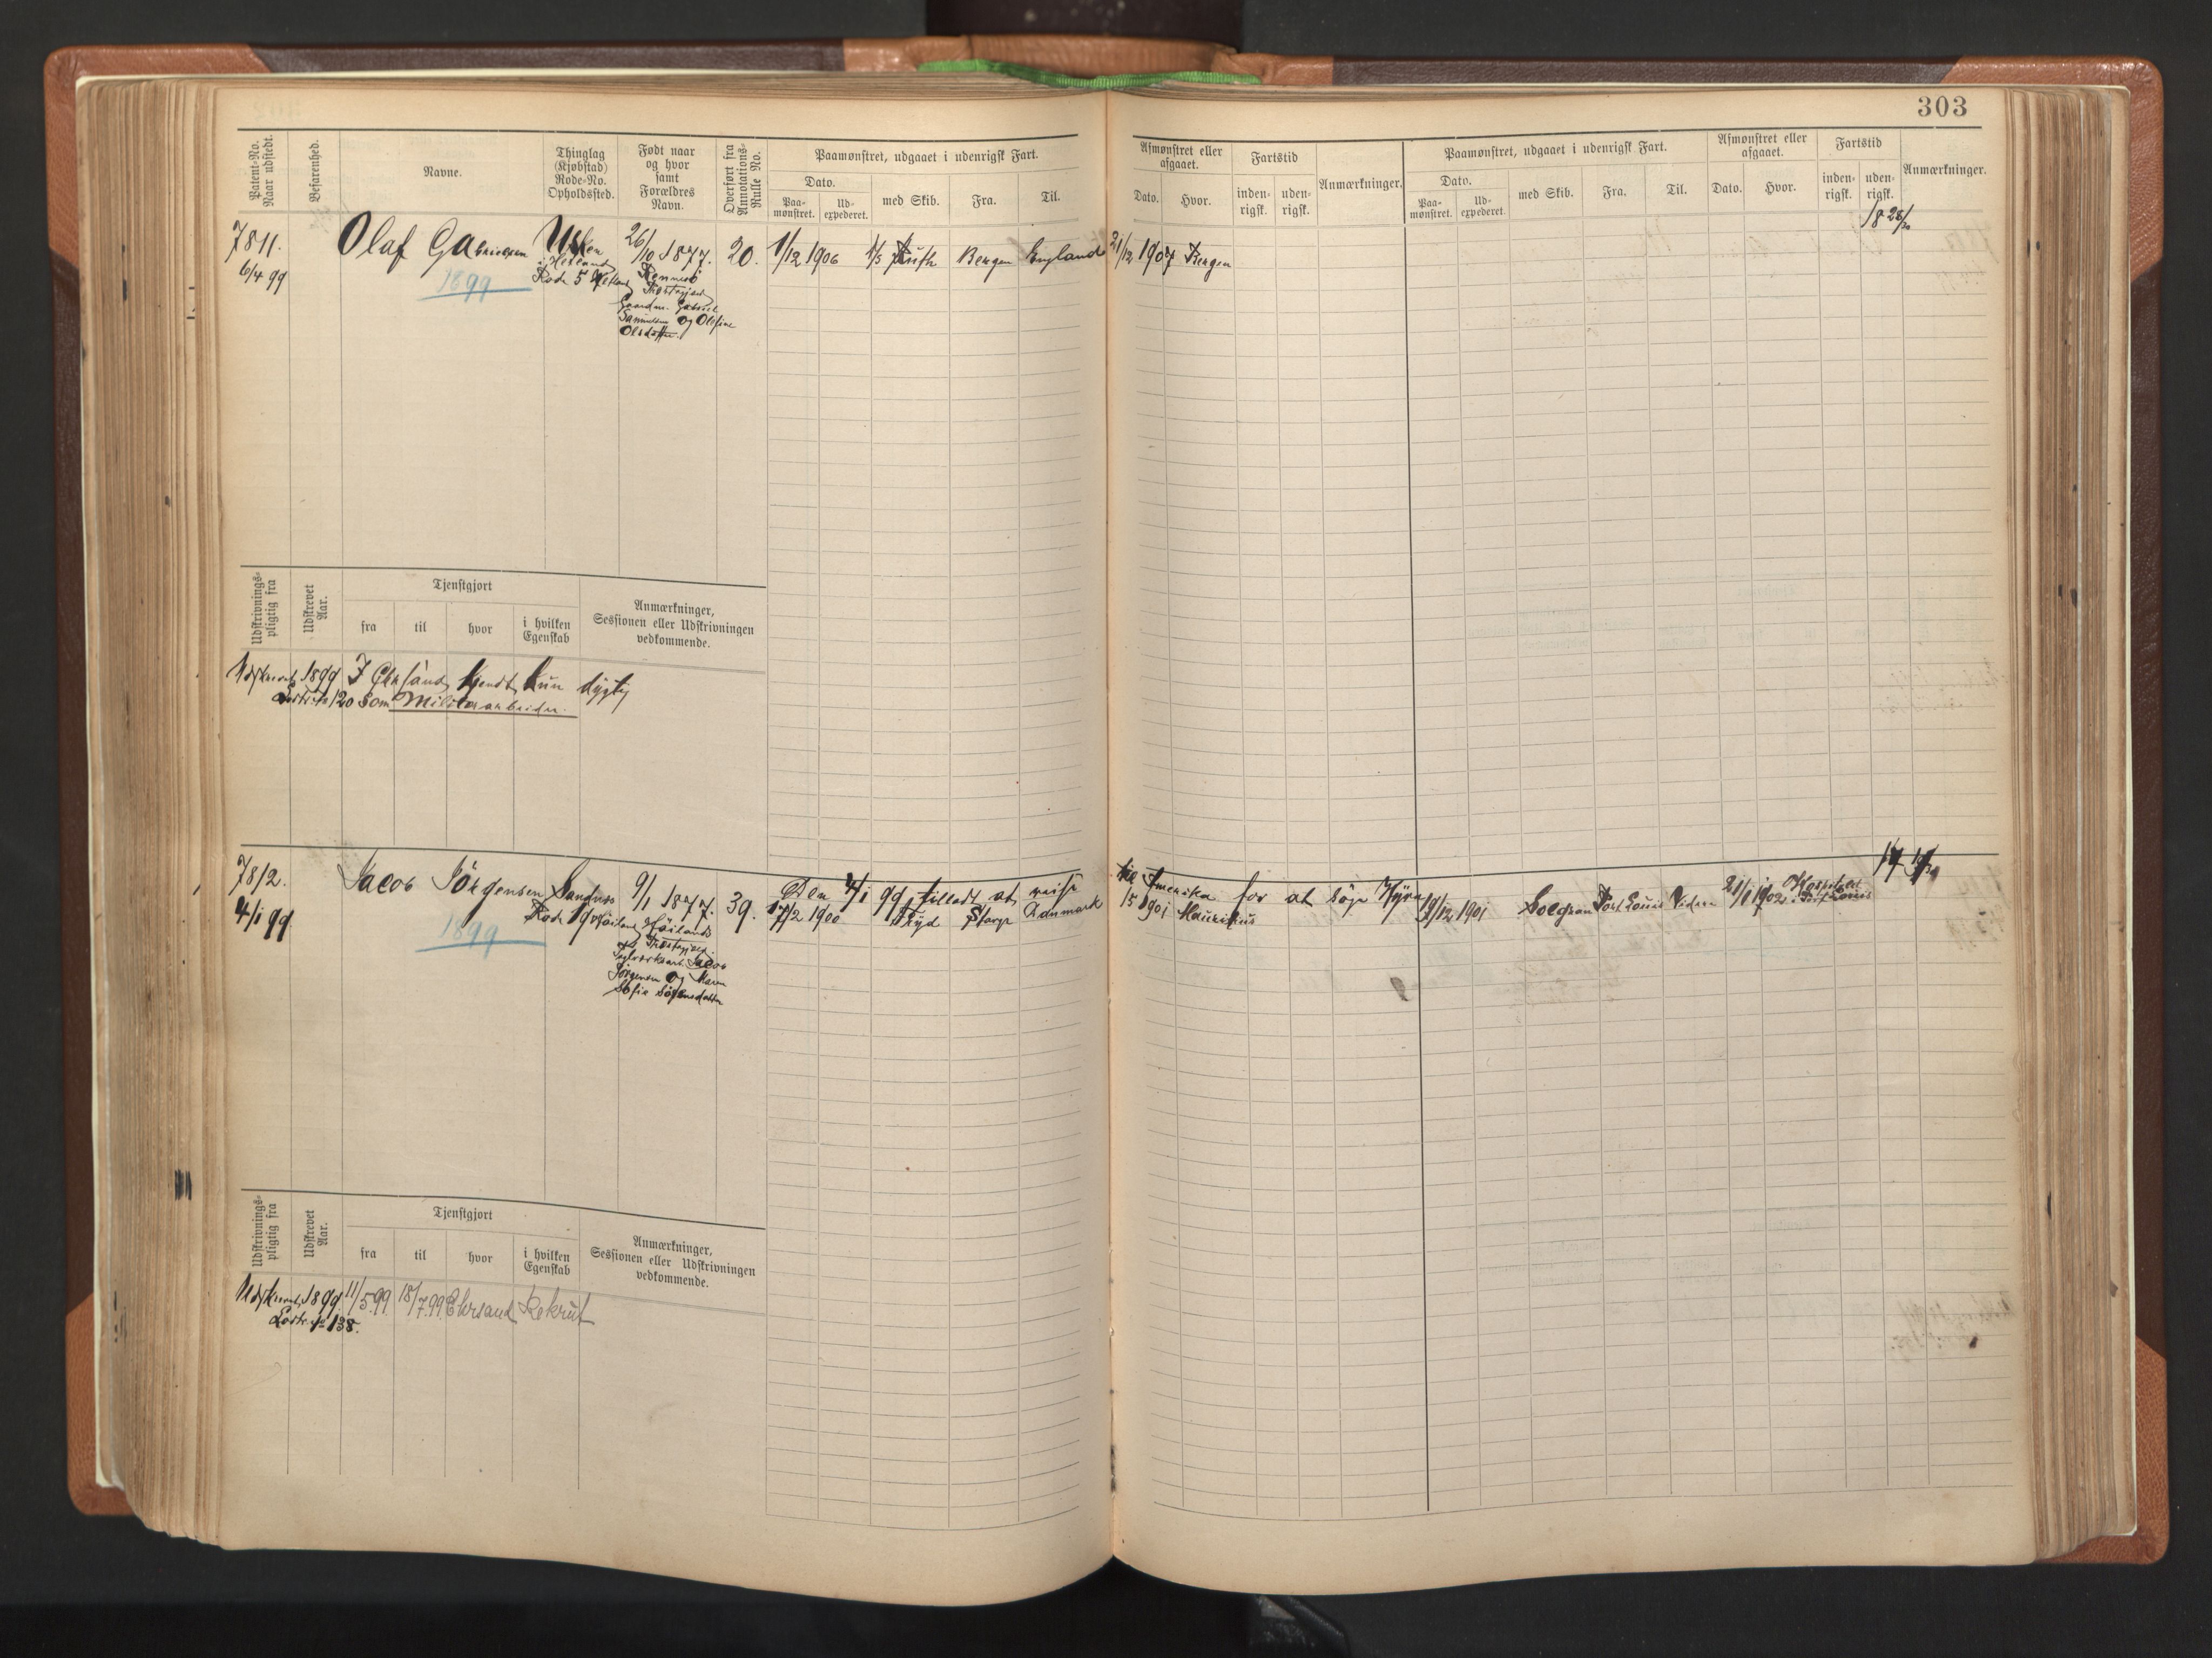 303
Patent-No. Naar udstedt.
Befarenhed.
Navne.
Thinglag (Kjøbstad) Rode-No. Opholdssted.
Født naar og hvor samt Forældres Navn.
Overført fra Annotations-Rulle No.
Paamønstret, udgaaet i udenrigsk Fart.
Dato.
Paa-mønstret.
Ud-expederet.
med Skib.
Fra.
Til.
Afmønstret eller afgaaet.
Dato.
Hvor.
Fartstid
inden-rigsk.
uden-rigsk.
Anmærkninger.
Paamønstret, udgaaet i udenrigsk Fart.
Dato.
Paa-mønstret.
Ud-expederet.
med Skib.
Fra.
Til.
Afmønstret eller afgaaet.
Dato.
Hvor.
Fartstid
inden-rigsk.
uden-rigsk.
Anmærkninger.
18 28/30
7811.
6/4 99
Olaf Gabrielsen
1899
Usken
i Hetland
Rode 5 Hetland
26/10 1877.
Rennesö
Præstegjeld
Gaardm. Gabriel
Samuelsen og Olefine
Olsdatter.
20.
1/12 1906
Bergen
England
21/12 1907 Bergen
Udskrivnings-pligtig fra
Udskrevet Aar.
Tjenstgjort
fra
til
hvor
i hvilken Egenskab
Anmærkninger, Sessionen eller Udskrivningen vedkommende.
Udskrevet 1899 I Chrsand kjendt kun dygtig
Lodtr. № 120 som Militærarbeider.
7812.
4/1 99
Jacob Jörgensen
1899
Sandnes
Rode 19 Höiland
9/1 1877.
Höilands
Præstegjeld
Jacob
Jörgensen og Karen
Sofie Sörensdatter
39.
Den 4/1 99 tilladt at reise
til Amerika for at söge Hyre
17/2 1900
Danmark
15 1901 Mauritius
19/12 1901
Solgran
Port Louis
Videre
21/1 1902
Hospitalet
i Port Louis
Udskrivnings-pligtig fra
Udskrevet Aar.
Tjenstgjort
fra
til
hvor
i hvilken Egenskab
Anmærkninger, Sessionen eller Udskrivningen vedkommende.
Udskrevet 1899. 11/5 99 18/7 99 Chrsand Rekrut
Lodtr. № 138.